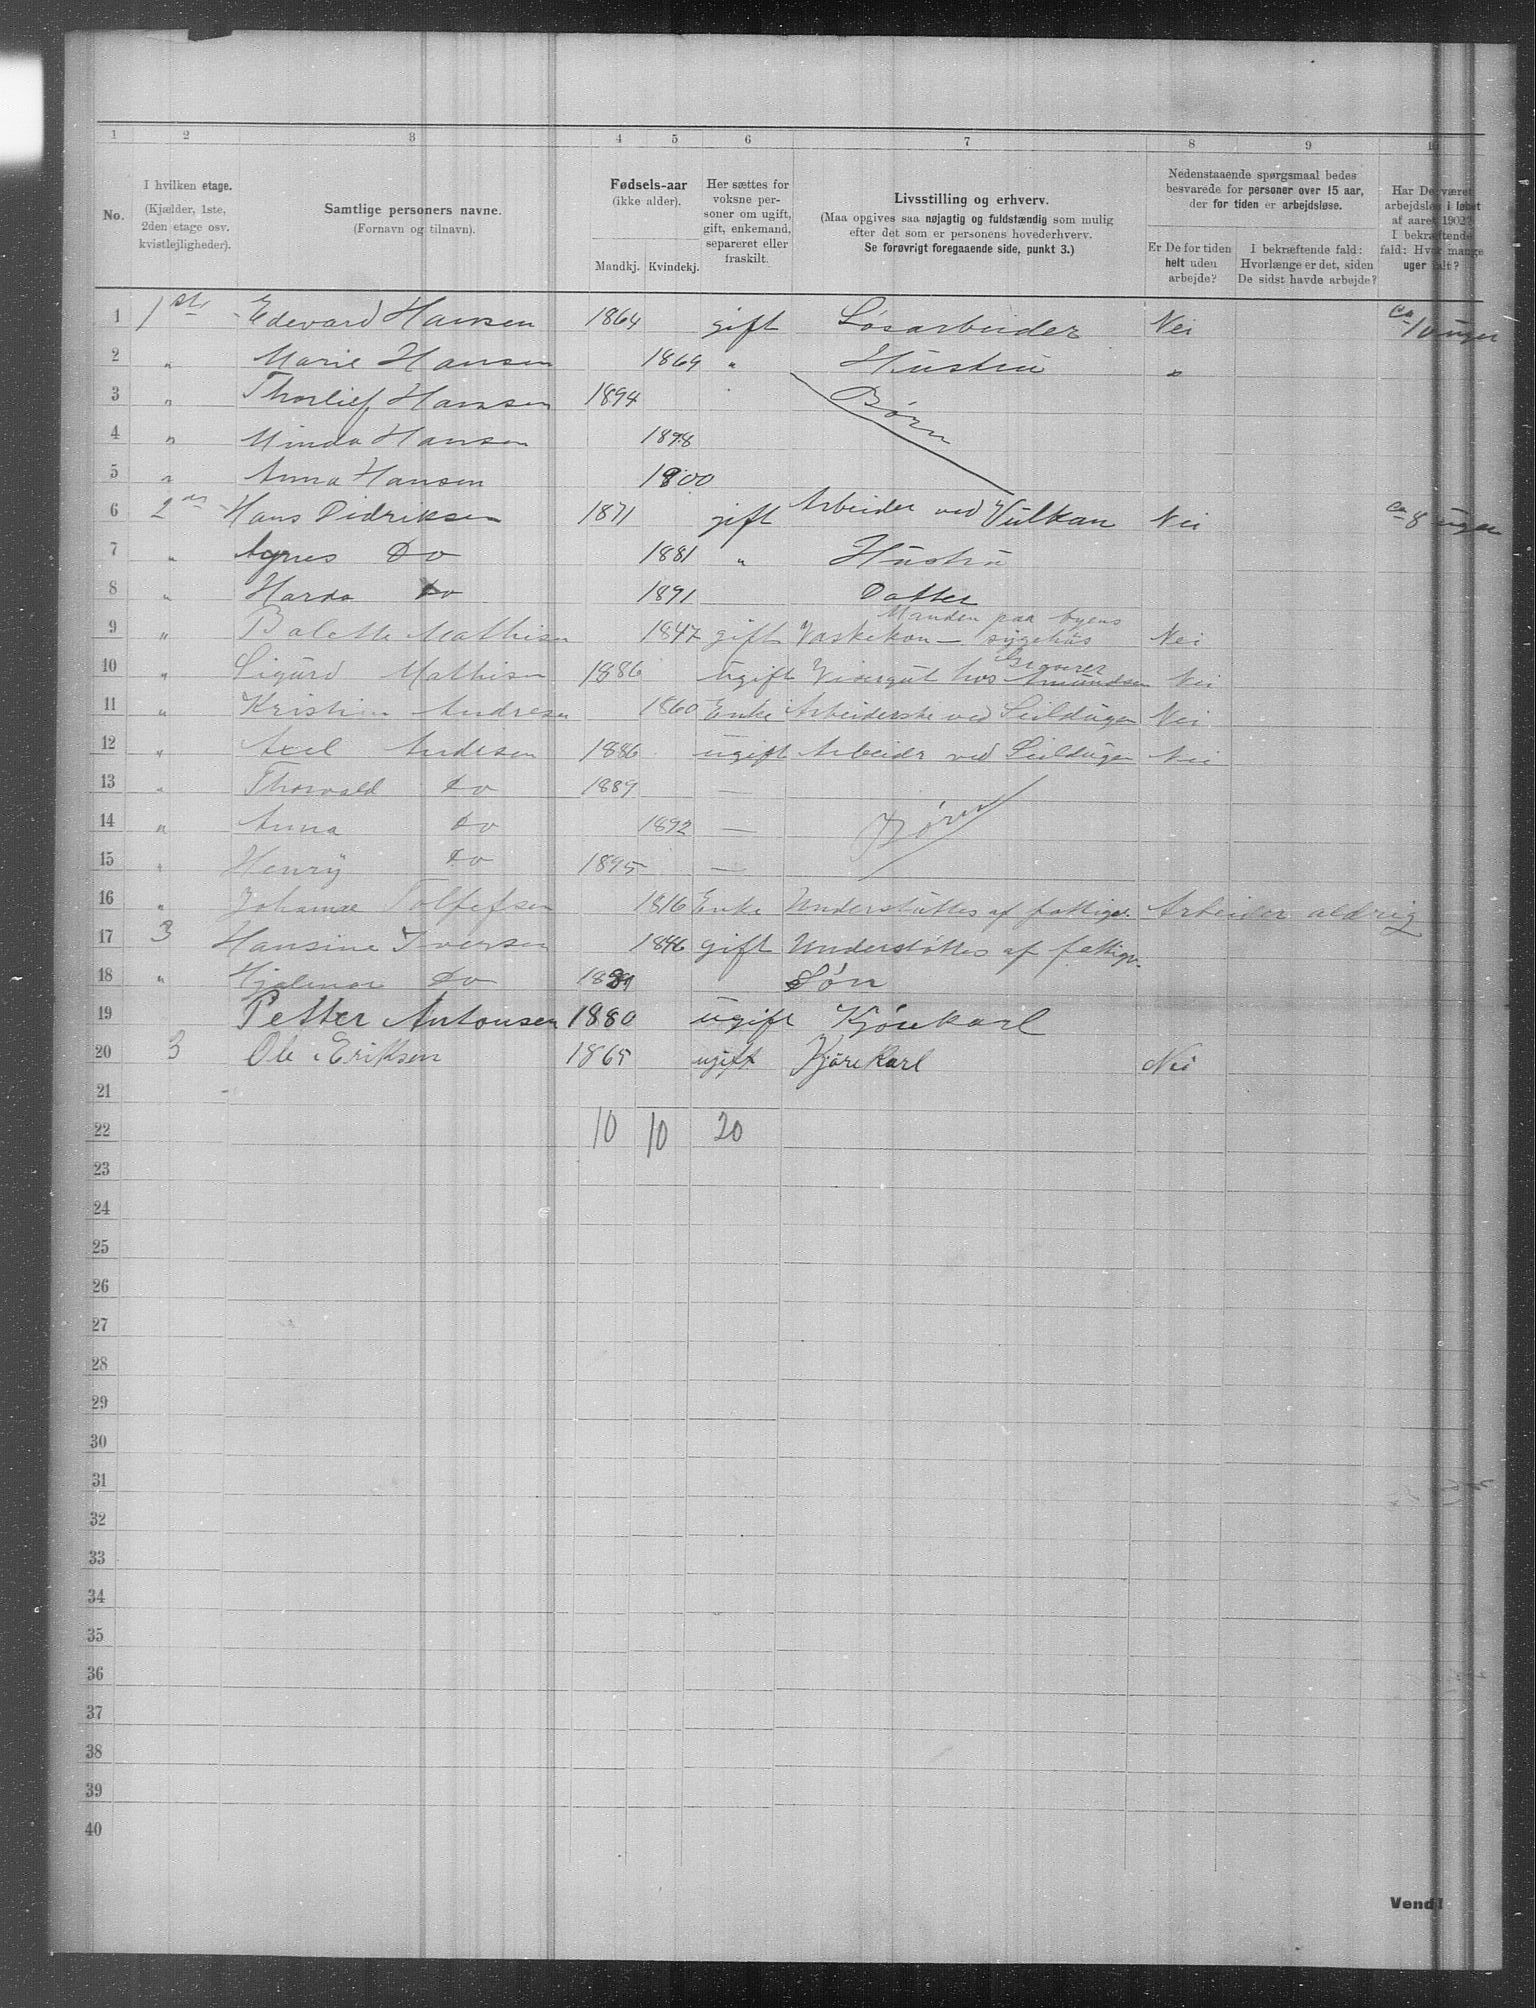 1 2 3 4 5 6 7 8 9 10
No.
I hvilken etage.
(Kjælder, 1ste,
2den etage osv.
kvistlejligheder).
Samtlige personers navne.
(Fornavn og tilnavn).
Fødsels-aar
(ikke alder).
Mandkj. Kvindekj.
Her sættes for
voksne per-
soner om ugift,
gift, enkemand,
separeret eller
fraskilt.
Livsstilling og erhverv.
(Maa opgives saa nøjagtig og fuldstændig som mulig
efter det som er personens hovederhverv.
Se forøvrigt foregaaende side, punkt 3.)
Nedenstaaende spørgsmaal bedes
besvarede for personer over 15 aar,
der for tiden er arbejdsløse.
Er De for tiden
helt uden
arbejde?
I bekræftende fald:
Hvorlænge er det, siden
De sidst havde arbejde?
Har De været
arbejdsløs i løbet
af aaret 1902?
I bekræftende
fald: Hvor mange
uger ialt?
1 1ste Edevard Hansen 1864 gift Løsarbeider Nei ca 10 uger
2 " Marie Hansen 1869 " Hustru "
3 " Thorlief Hansen 1894 Børn
4 " Minda Hansen 1898
5 " Anna Hansen 1900
6 2den Hans Didriksen 1871 gift Arbeider ved Vulkan Nei ca 8 uger
7 " Agnes Do 1881 " Hustru
8 " Harda Do 1891 Datter
Manden paa byens
9 " Bolette Mathisen 1847 gift Vaskekon - sygehus Nei
Gravører
10 " Sigurd Mathisen 1886 ugift Visergut hos Amundsen Nei
11 " Kristine Andresen 1860 Enke Arbeiderske ved Seildugen Nei
12 " Axel Andresen 1886 ugift Arbeider ved Seildugen Nei
13 " Thorvald Do 1889 —
14 " Anna Do 1892 — Børn
15 " Henry Do 1895 —
16 " Johanne Tollefsen 1816 Enke Understøttes af fattigv. Arbeider aldrig
17 3 Hansine Iversen 1846 gift Understøttes af fattigv.
18 " Hjalmar Do Søn
19 Petter Antonsen 1880 ugift Kjørekarl
20 3 Ole Eriksen 1865 ugift Kjørekarl Nei
21
22 10 10 20
23
24
25
26
27
28
29
30
31
32
33
34
35
36
37
38
39
40
Vend!